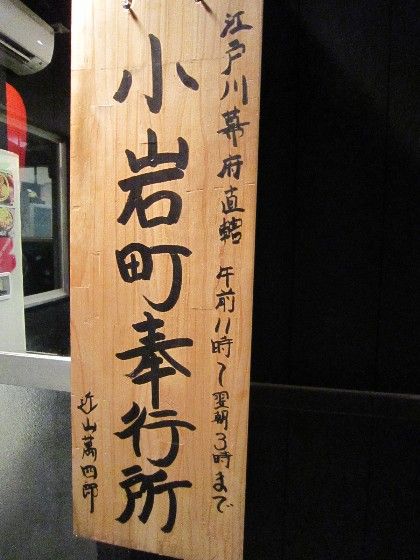 江戸川幕府直轄 午前11時~翌朝3時まで
小岩町奉行所
近山萬四郎